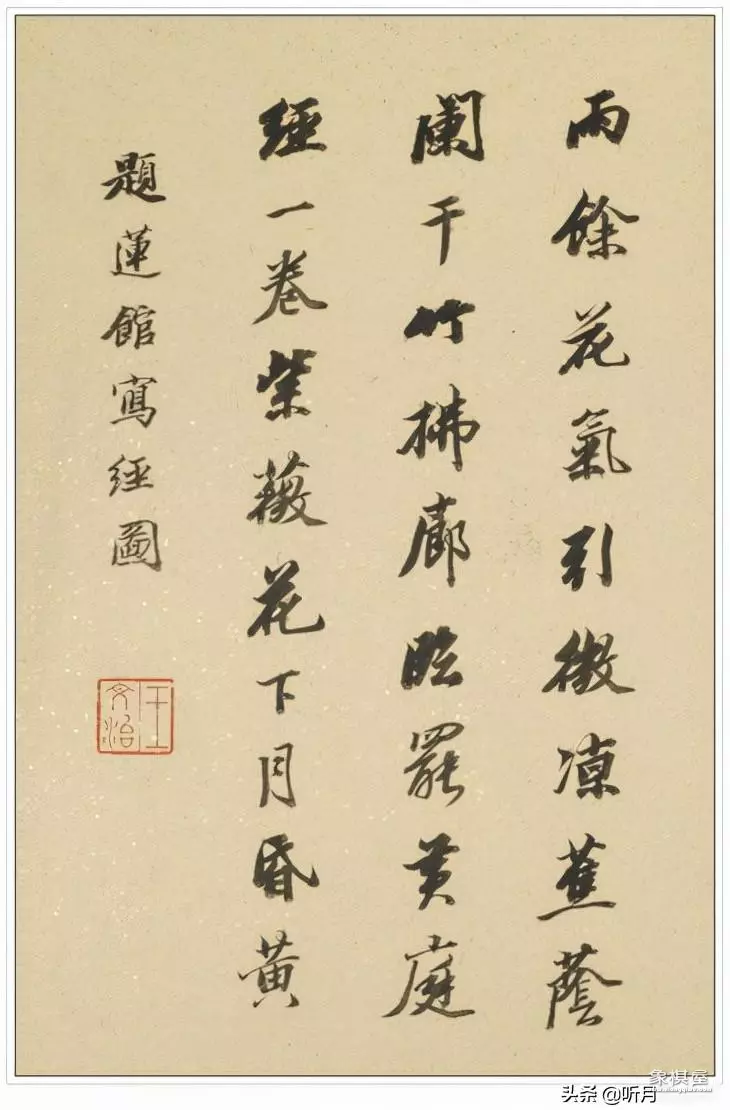 雨餘花氣引微凉蕉蔭
闌干竹拂廊臨罷黃庭
經一卷紫薇花下月昏黃
題蓮館寫經圖
王文治
象棋屋
头条 @听月